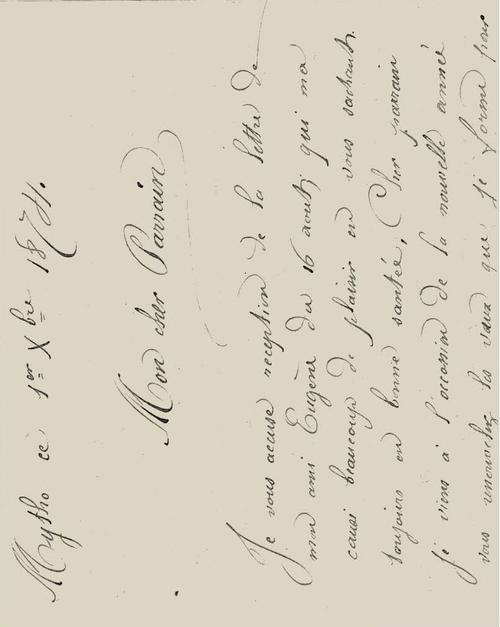 Mytho ce 1er Xbre 1874.
Mon cher Parrain
Je vous accuse reception de la lettre de
mon ami Eugène du 16 aout, qui ma
causé beaucoup de plaisir en vous sachant
toujours en bonne santée, Cher parrain
je viens à l'occasion de la nouvelle année
vous renouveler les vœux que je forme pour